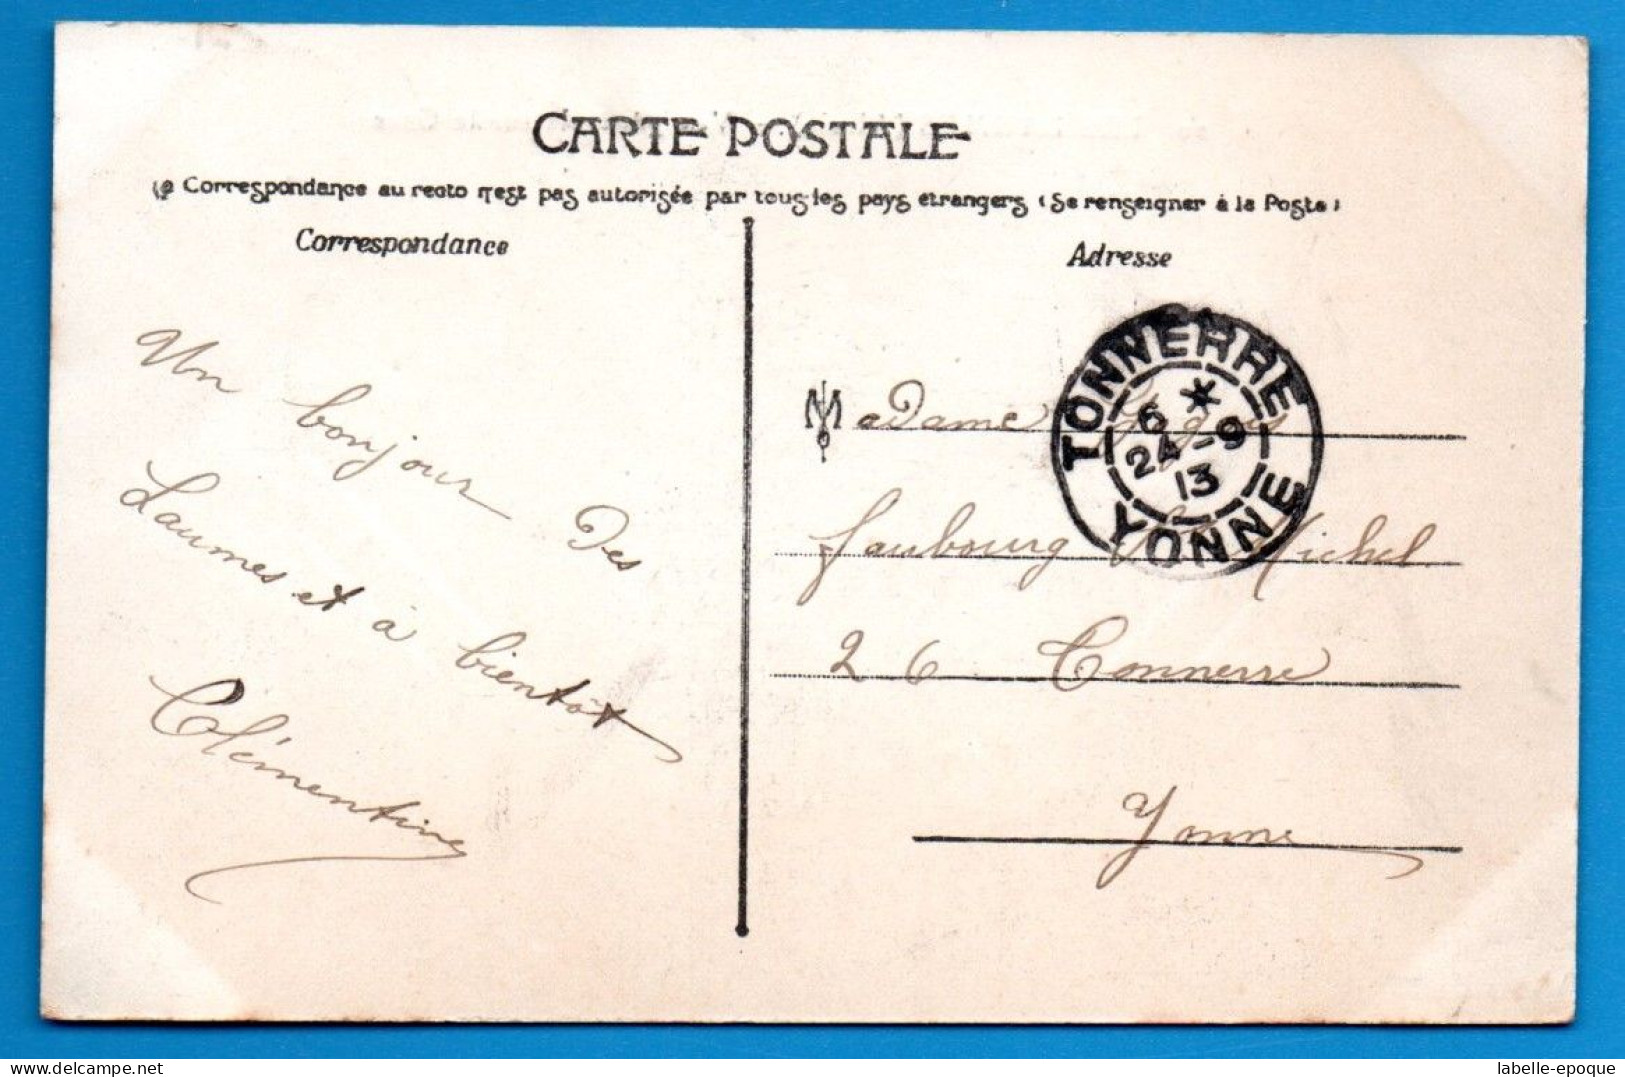 CARTE POSTALE
La Correspondance au recto n'est pas autorisée par tous les pays étrangers (Se renseigner à la Poste)
Correspondance
Adresse
Un bonjour des
Laumes et à bientôt
Clémentine
TONNERRE
6 *
24-9
13
YONNE
Madame
faubourg St Michel
26 Tonnerre
Yonne
website: delcampe.net
labelle-epoque